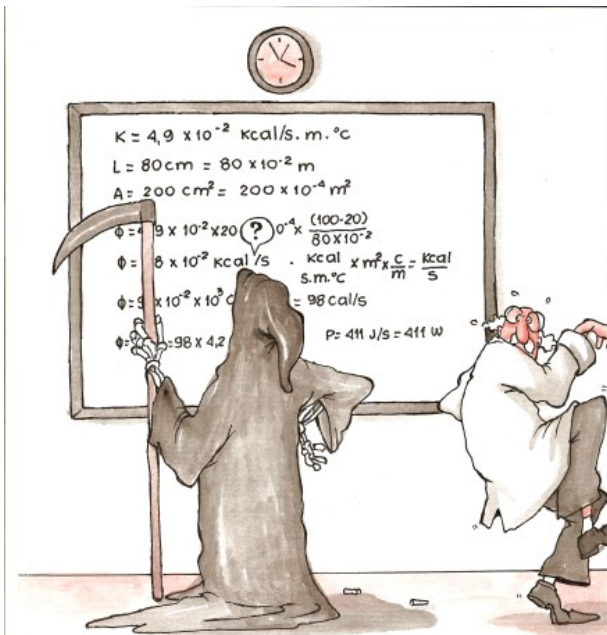 K = 4,9 x 10⁻² kcal/s. m. °c
L = 80 cm = 80 x 10⁻² m
A = 200 cm² = 200 x 10⁻⁴ m²
?
ϕ = 9 x 10⁻² x 20 0⁻⁴ x (100-20)/80 x 10⁻²
ϕ = 8 x 10⁻² kcal/s . kcal/s.m.°c x m² x c/m = kcal/s
ϕ = 9 x 10⁻² x 10³ c = 98 cal/s
ϕ = = 98 x 4,2 P = 411 J/s = 411 W